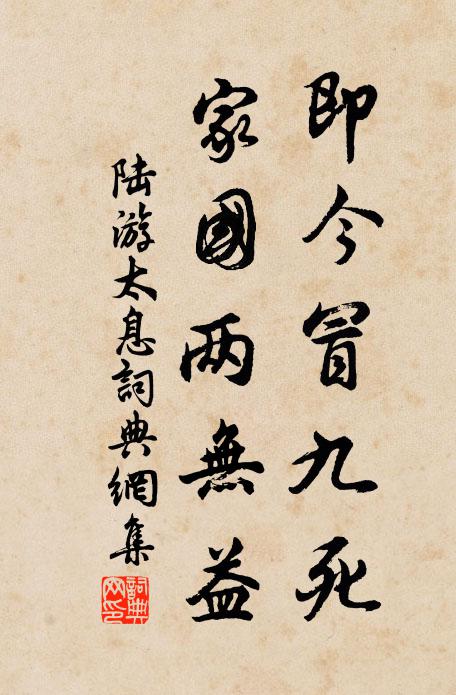 即今冒九死
家國两無益
陆游太息詞典網集
詞典
网印